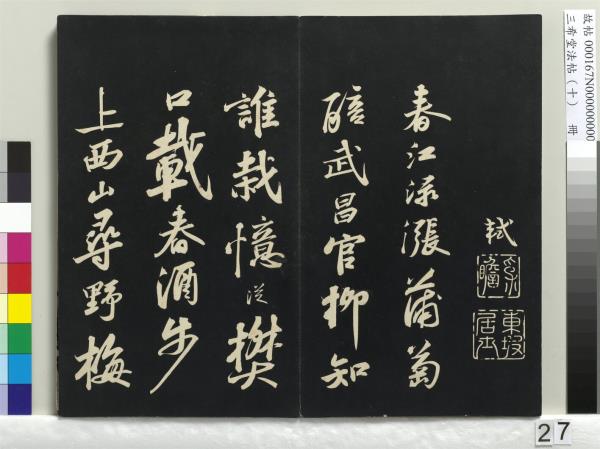 故帖 000167N000000000
三希堂法帖(十) 冊
軾
東坡居士
春江淥漲蒲萄
醅武昌官柳知
誰栽憶從樊
口載春酒步
上西山尋野梅
27